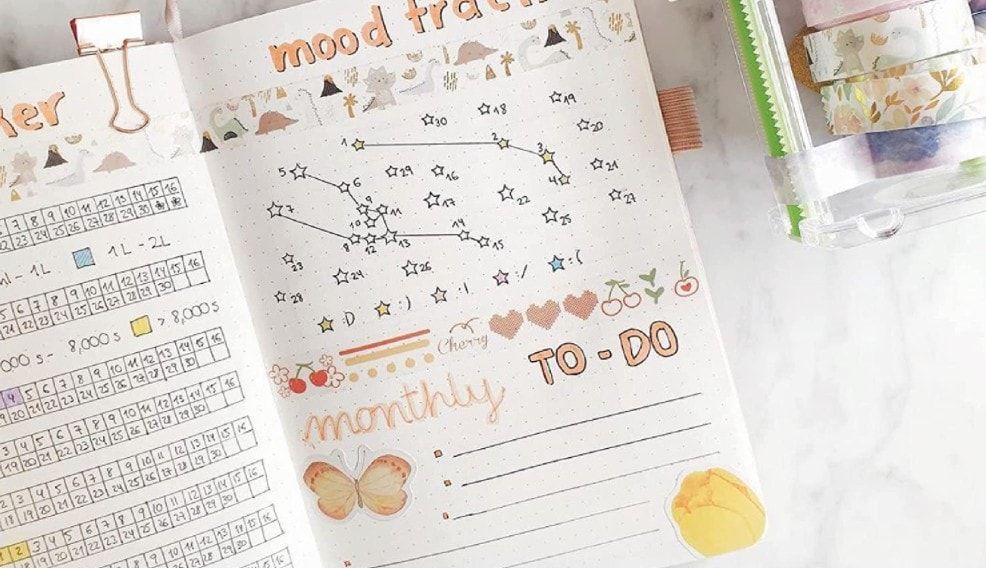 ker
mood track
7 8 9 10 11 12 13 14 15 16
22 23 24 25 26 27 28 29 30
ml - 1L 1L - 2L
5 6 7 8 9 10 11 12 13 14 15 16
21 22 23 24 25 26 27 28 29 30
000 s - 8,000 s > 8,000 s
4 5 6 7 8 9 10 11 12 13 14 15 16
19 20 21 22 23 24 25 26 27 28 29 30
3 4 5 6 7 8 9 10 11 12 13 14 15 16
19 20 21 22 23 24 25 26 27 28 29 30
2 3 4 5 6 7 8 9 10 11 12 13 14 15 16
18 19 20 21 22 23 24 25 26 27 28 29 30
1 2 3 4 5 6 7 8 9 10 11 12 13 14 15 16
19 20 21 22 23 24 25 26 27 28 29 30
30 18 19
1 2 3 20
5 6 29 16 4 21
7 9 10 11 17 22 27
8 12 13 14 15 25
23 24 26
28
:D :) :| :/ :(
Cherry
monthly TO-DO